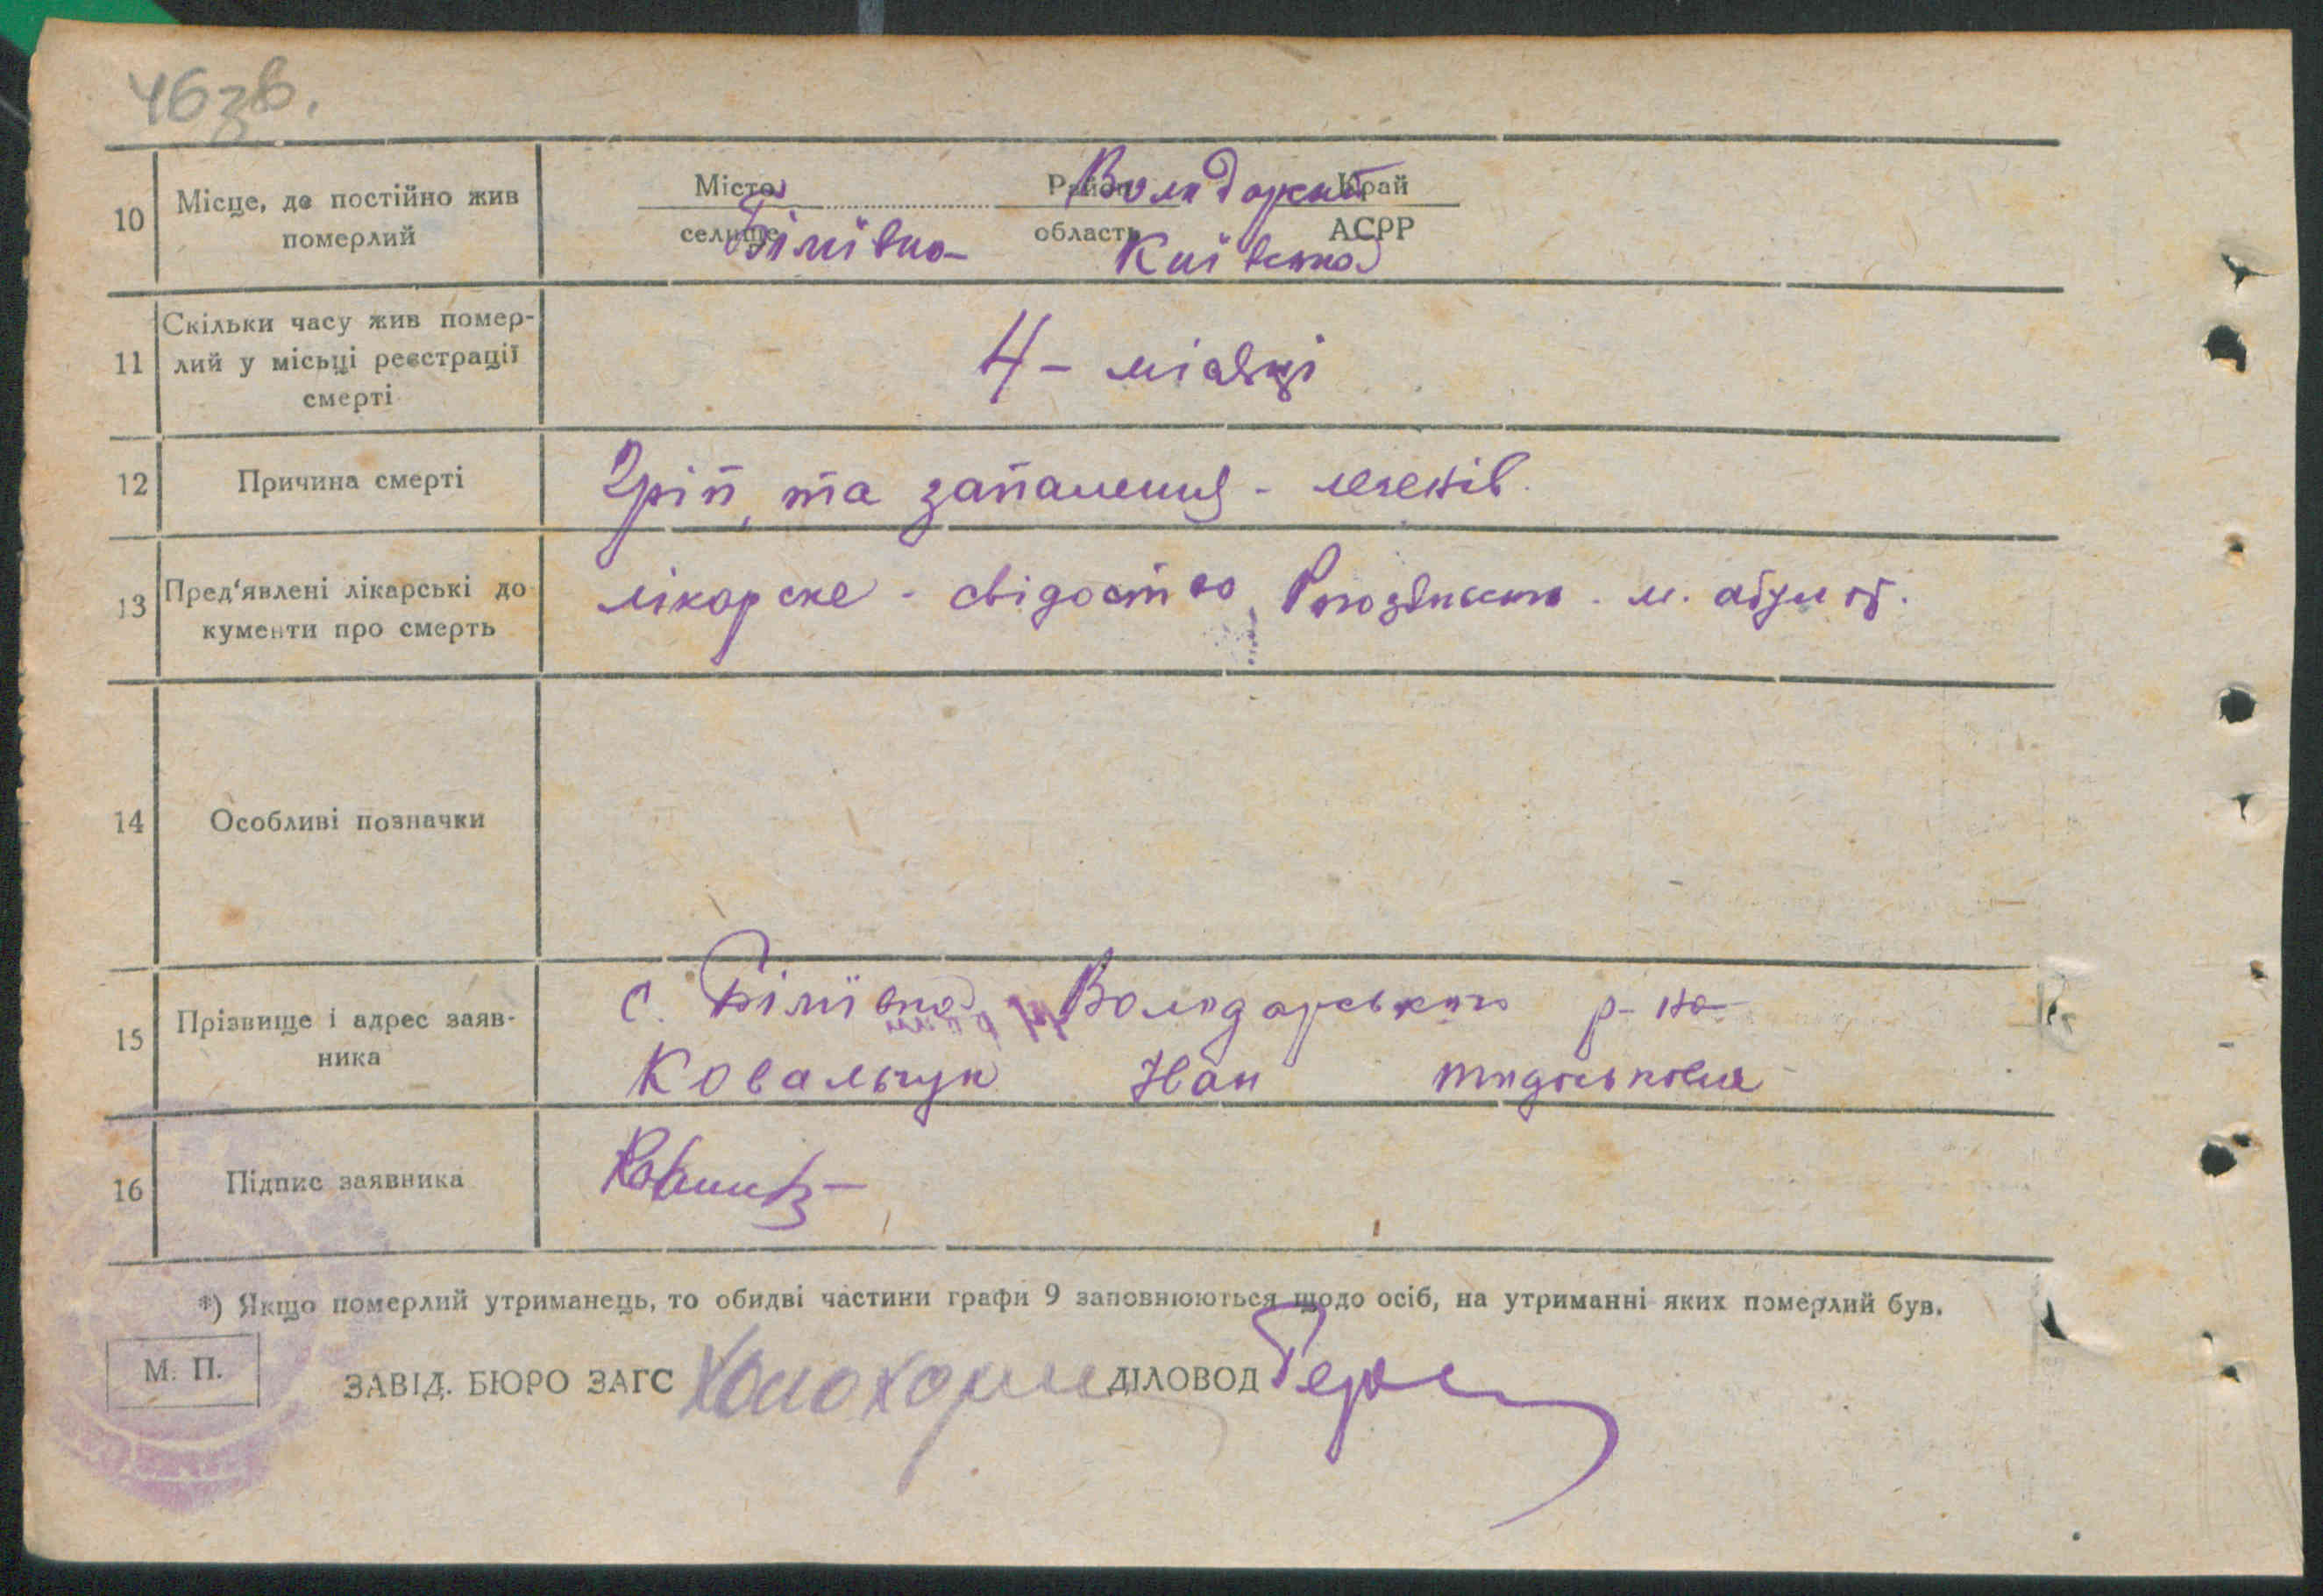 46 зв.
10
Місце, де постійно жив
померлий
Місто
Район
Край
Володарський
селище
область
АСРР
Біліївка
Київська
11
Скільки часу жив помер-
лий у місьці реєстрації
смерті
4 - місяці
12
Причина смерті
Гріп, та запалення - легенів.
13
Пред'явлені лікарські до
кументи про смерть
лікарске - свідоство
14
Особливі позначки
15
Прізвище і адрес заяв-
ника
с. Біліївка Володарського р-на
Ковальчук Іван
16
Підпис заявника
*) Якщо померлий утриманець, то обидві частини графи 9 заповнюються щодо осіб, на утриманні яких померлий був.
М. П.
ЗАВІД. БЮРО ЗАГС
ДІЛОВОД